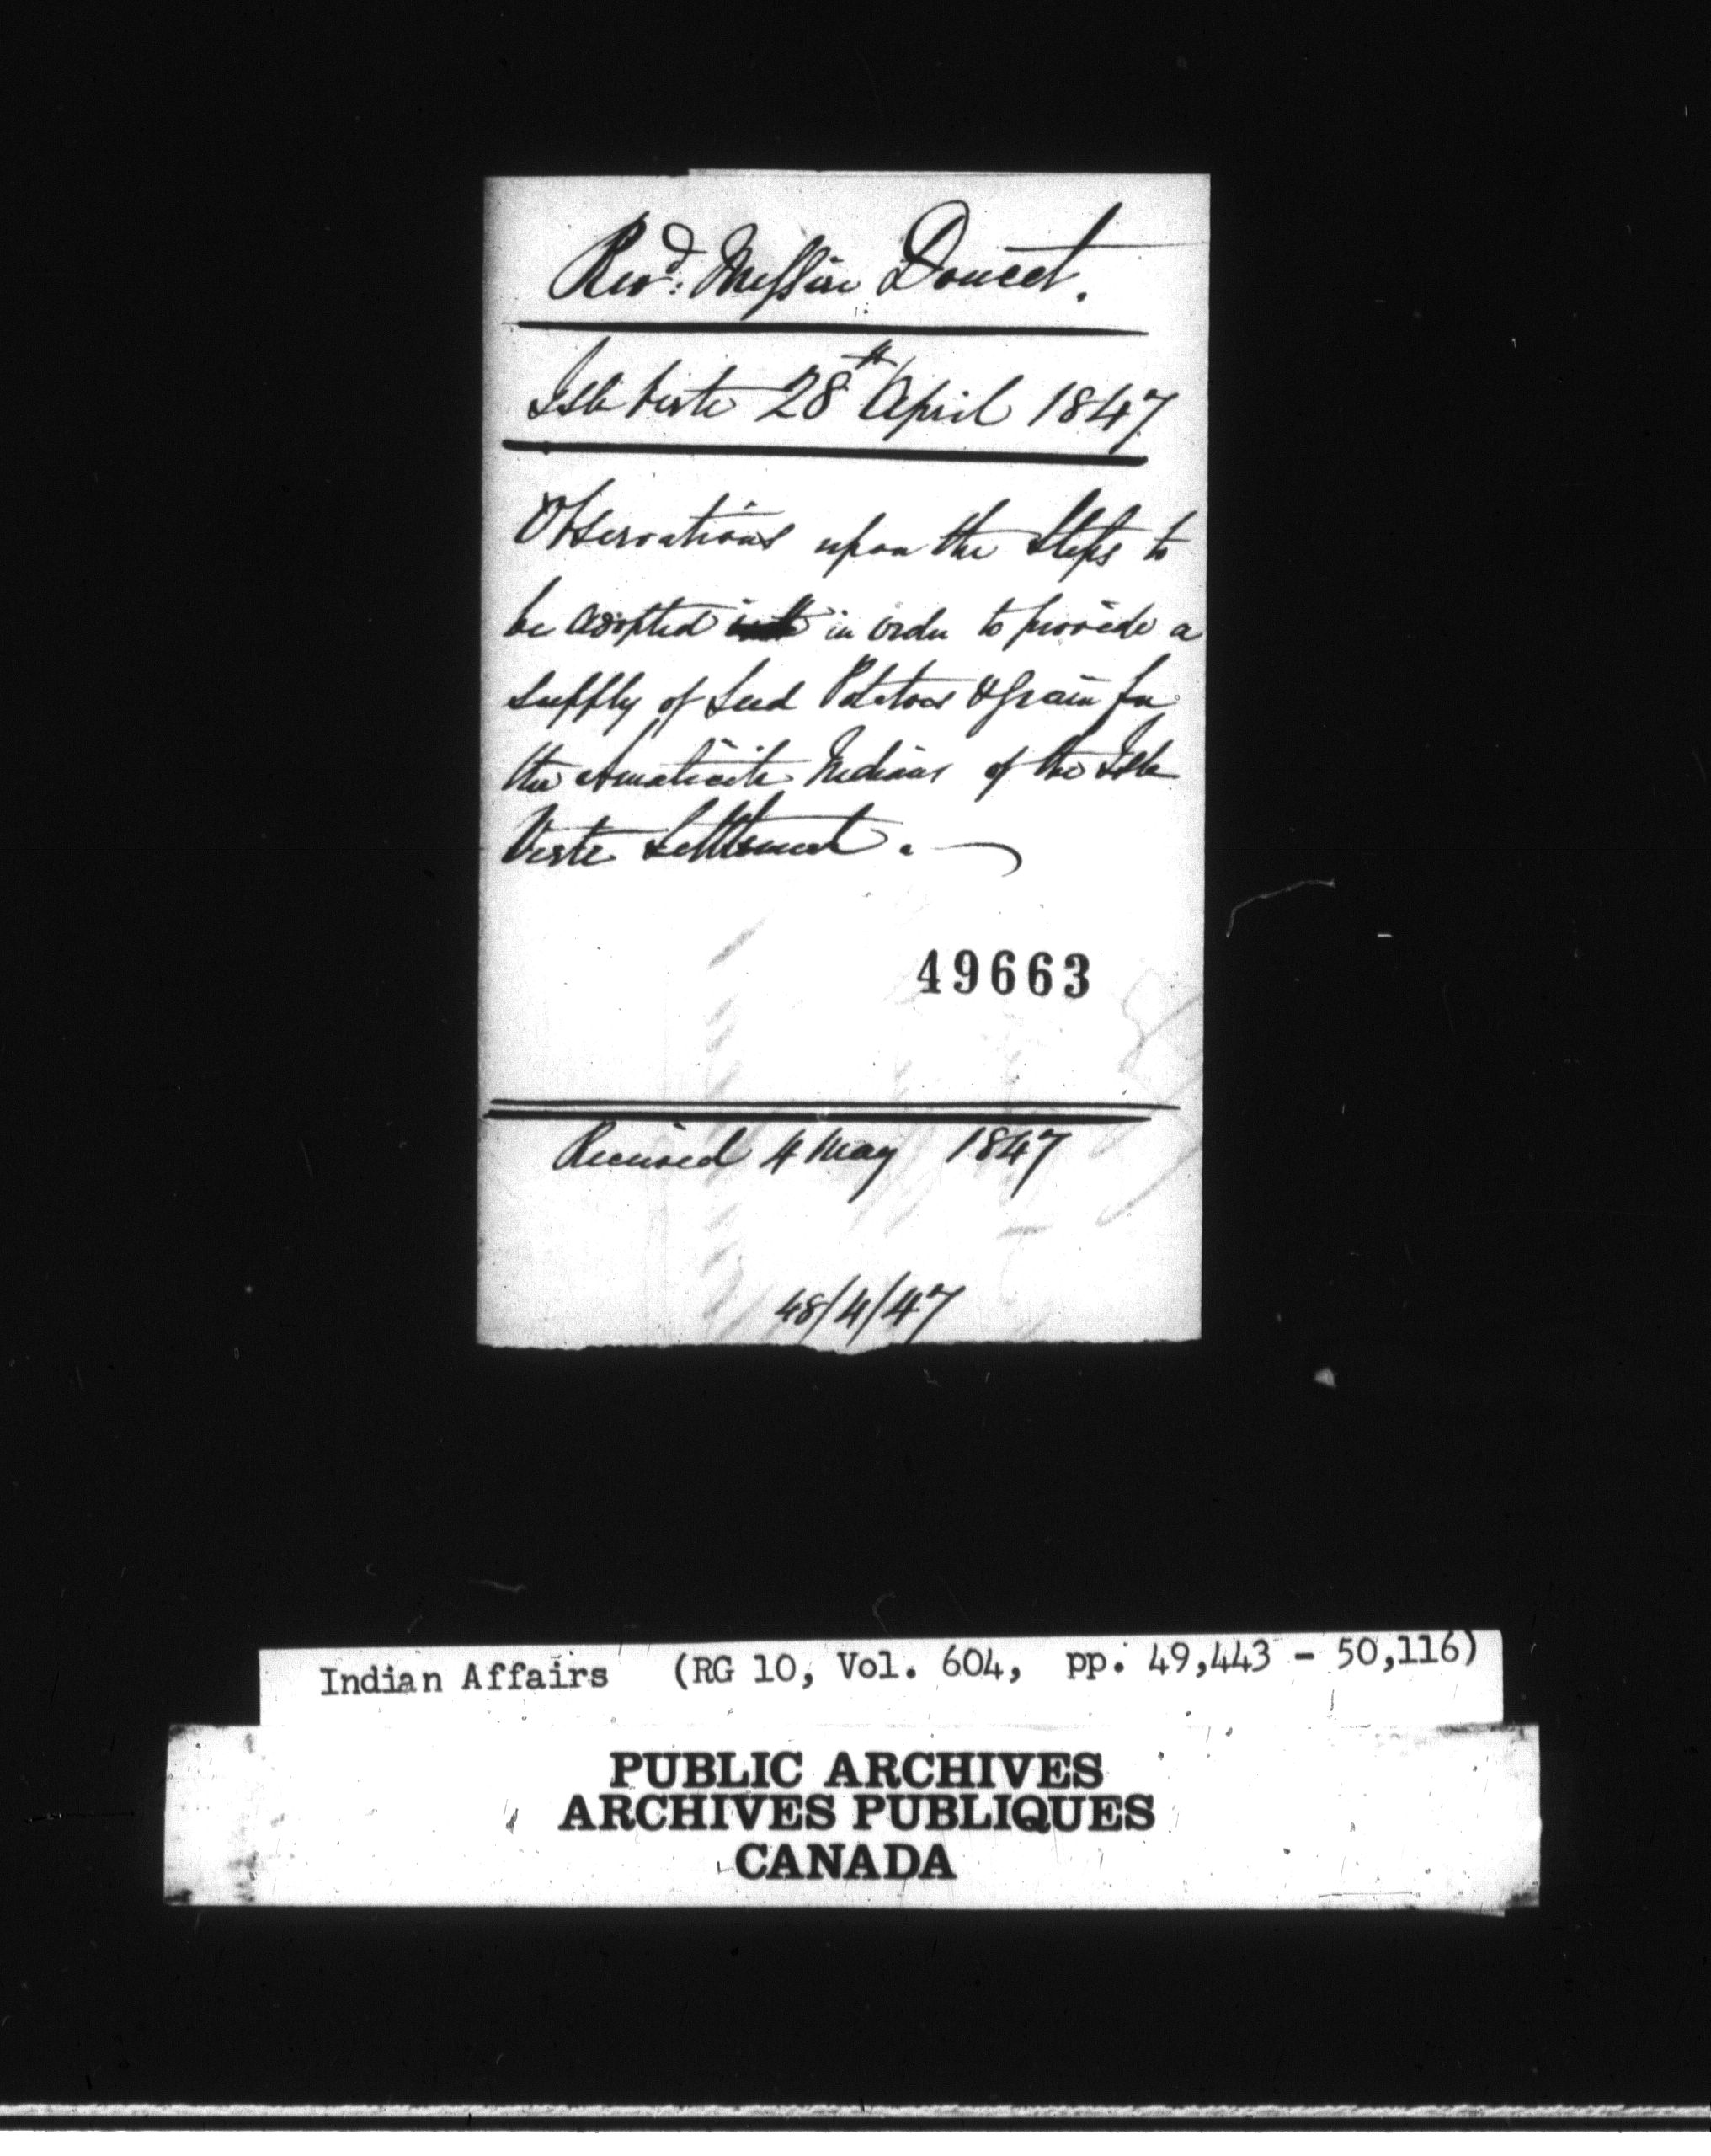 Revd: Messire Doucet.
Isle Verte 28th April 1847
Observations upon the Steps to
be adopted in order to provide a
supply of Seed Potatoes & Grain for
the Amalicite Indians of the Isle
Verte Settlement.
49663
Received 4 May 1847
48/4/47
Indian Affairs (RG 10, Vol. 604, pp. 49,443 - 50,116)
PUBLIC ARCHIVES
ARCHIVES PUBLIQUES
CANADA